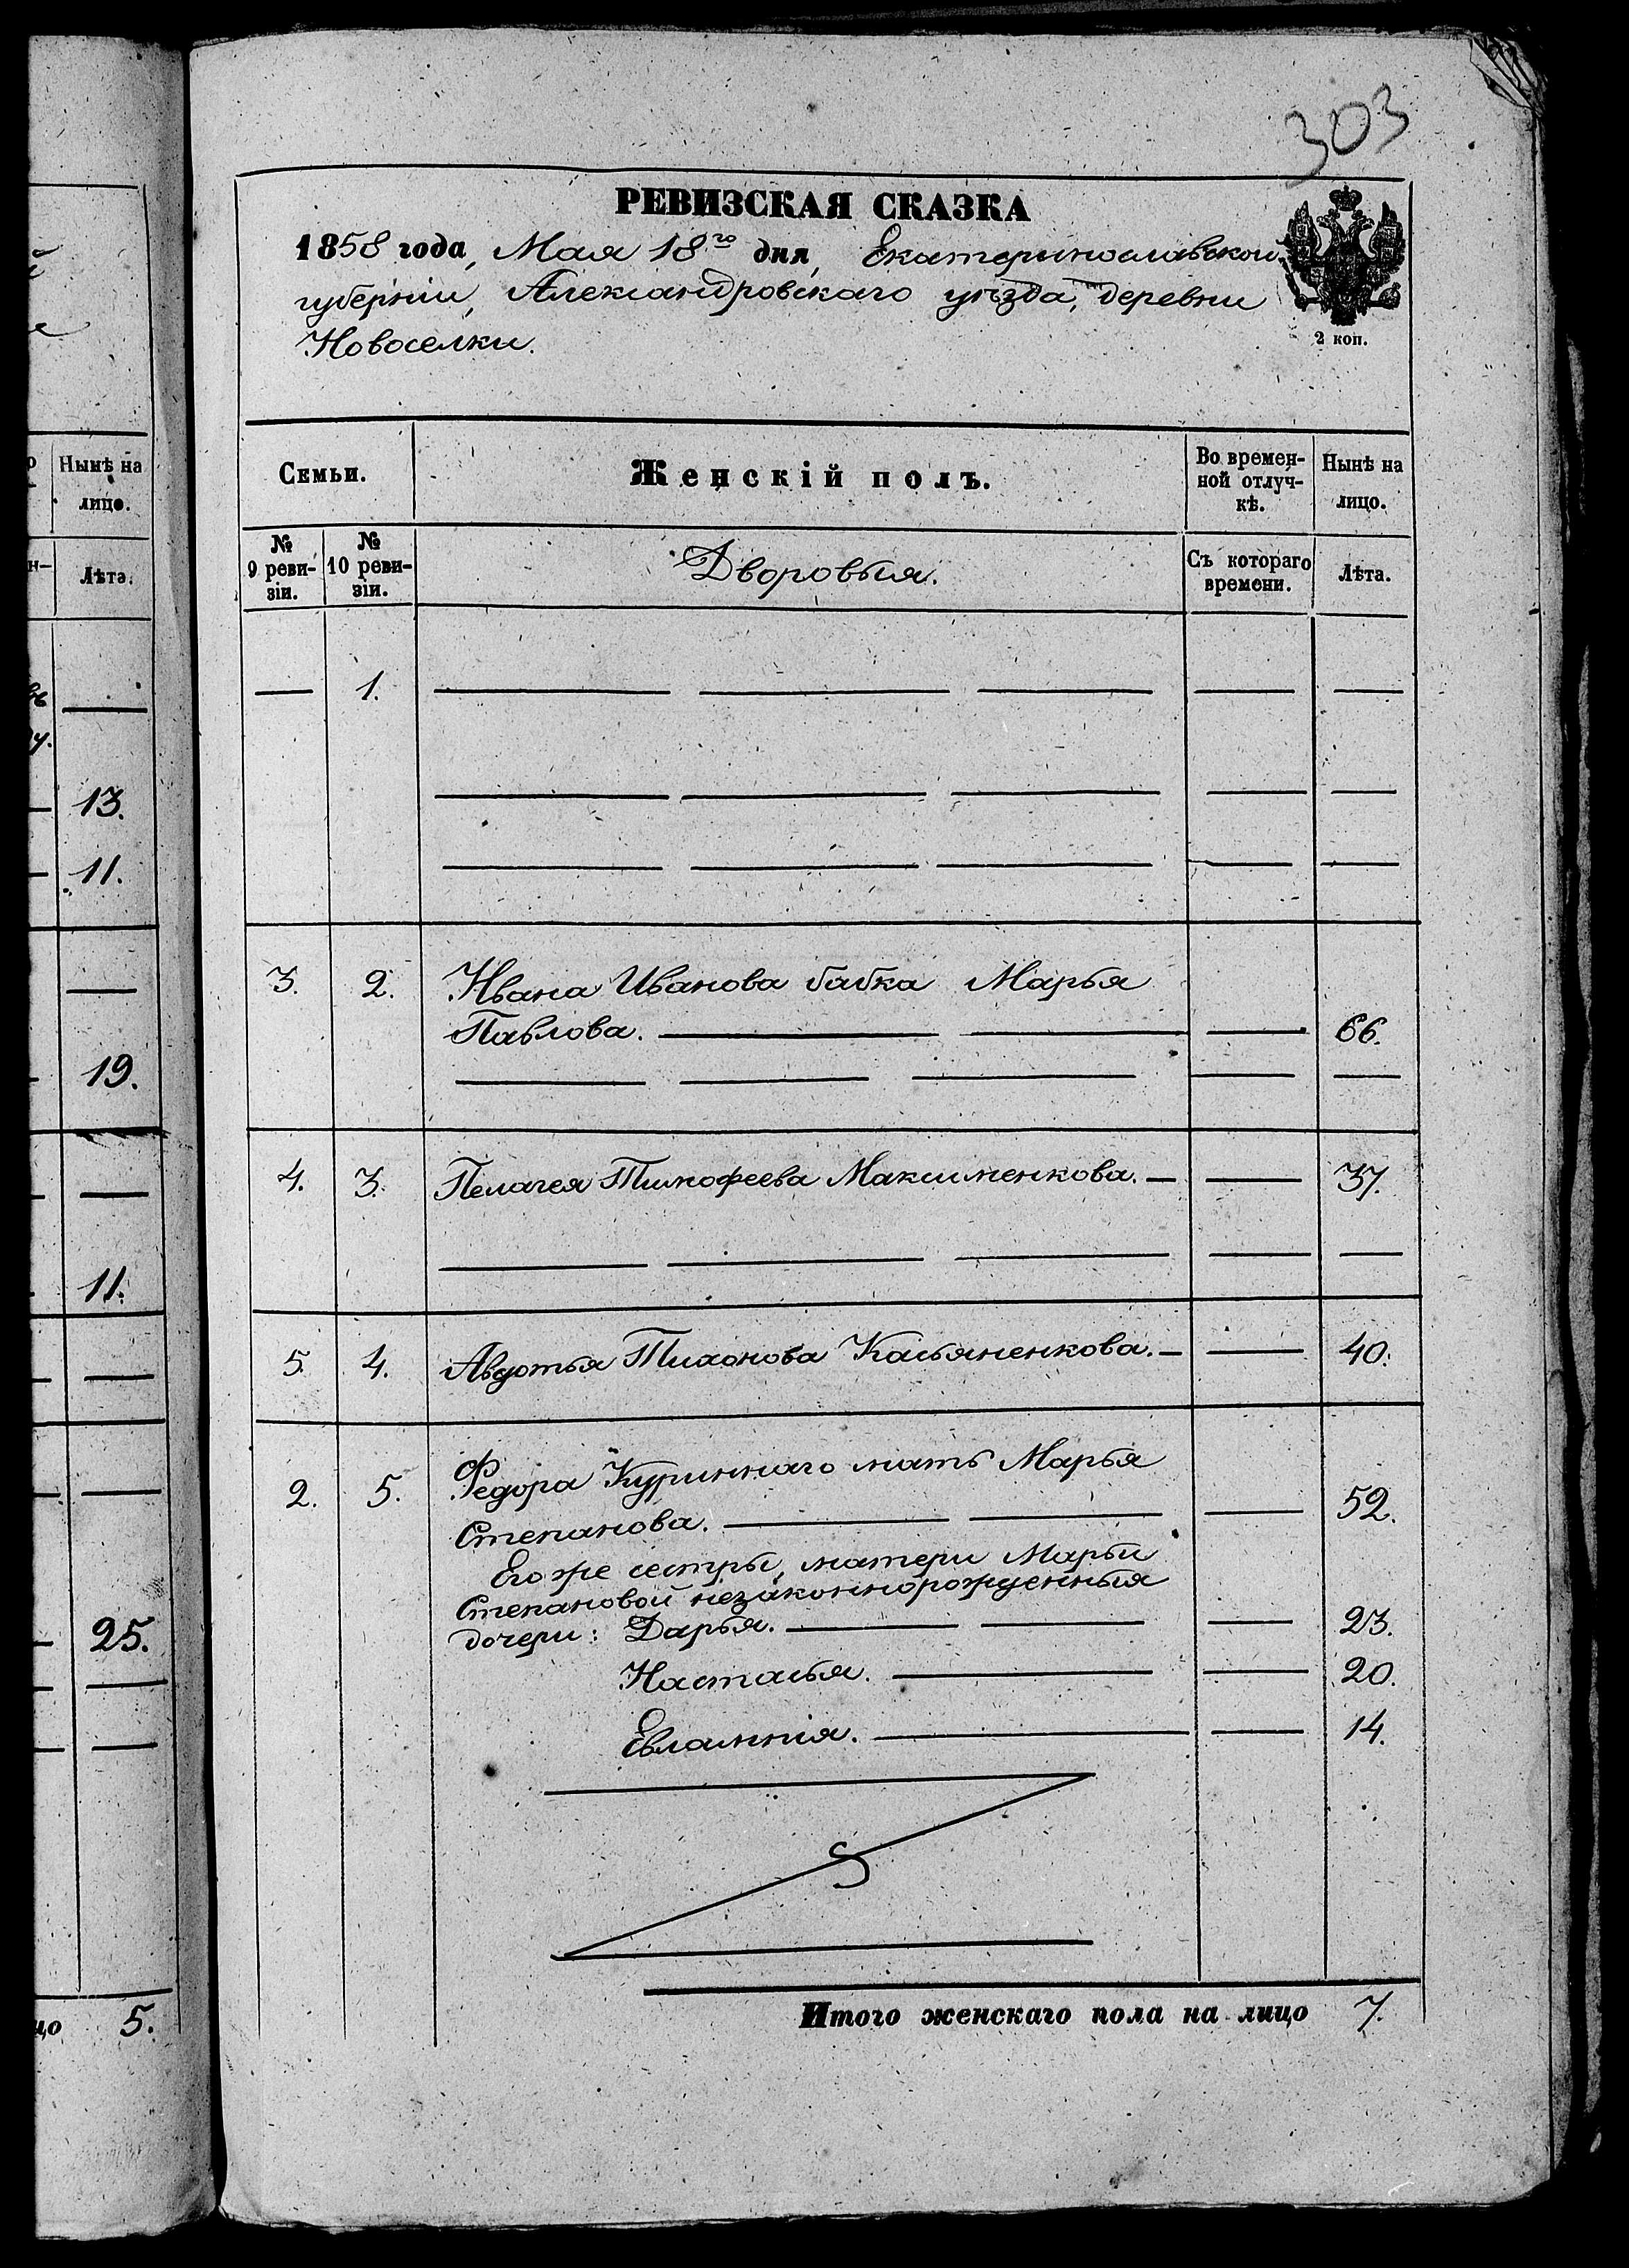 303
РЕВИЗСКАЯ СКАЗКА
1858 года, Мая 18го дня, Екатеринославской
губерніи, Александровскаго уѣзда, деревни
Новоселки.
2 коп.
Семьи. Женскій полъ. Во времен-ной отлуч-кѣ. Нынѣ на лицо.
№ 9 реви-зіи. № 10 реви-зіи. Дворовыя. Съ котораго времени. Лѣта.
— 1. — — — — —
— — — — —
— — — — —
3. 2. Ивана Иванова бабка Марья
Павлова. — — — 66.
— — — — —
4. 3. Пелагея Тимофеева Максименкова. — — 37.
— — — — —
5. 4. Авдотья Тихонова Касьяненкова. — — 40.
2. 5. Федора Куриннаго мать Марья
Степанова. — — — 52.
Его же сестры, матери Марьи
Степановой незаконнорожденныя
дочери: Дарья. — — — 23.
Настасья. — — 20.
Евлампія. — — 14.
Итого женскаго пола на лицо 7.
Нынѣ на
лицо.
Лѣта.
—
13.
11.
—
19.
—
11.
—
—
25.
—
—
цо 5.